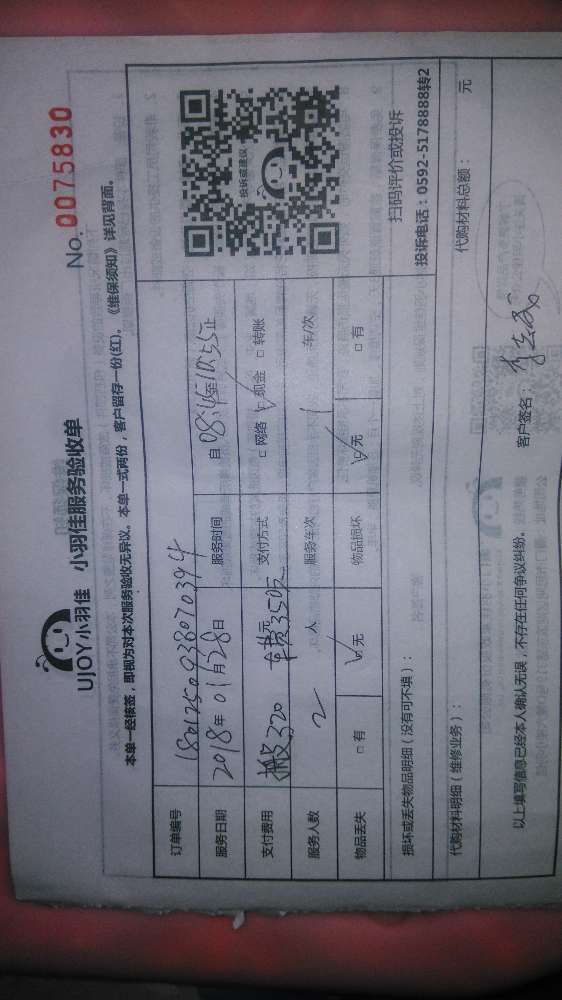 No. 0075830
UJOY小羽佳 小羽佳服务验收单
本单一经核签，即视为对本次服务验收无异议。本单一式两份，客户留存一份(红)。《维保须知》详见背面。
订单编号 1801250938070394
服务日期 2018年01月28日 服务时间 自08:45至10:55止
支付费用 搬320 车费350元 支付方式 □网络 ☑现金 □转账
服务人数 2人 服务车次 1车/次
物品丢失 □有 ☑无 物品损坏 ☑无 □有
投诉或建议
扫码评价或投诉
投诉电话：0592-5178888转2
损坏或丢失物品明细（没有可不填）：
代购材料明细（维修业务）： 代购材料总额： 元
以上填写信息已经本人确认无误，不存在任何争议纠纷。 客户签名：